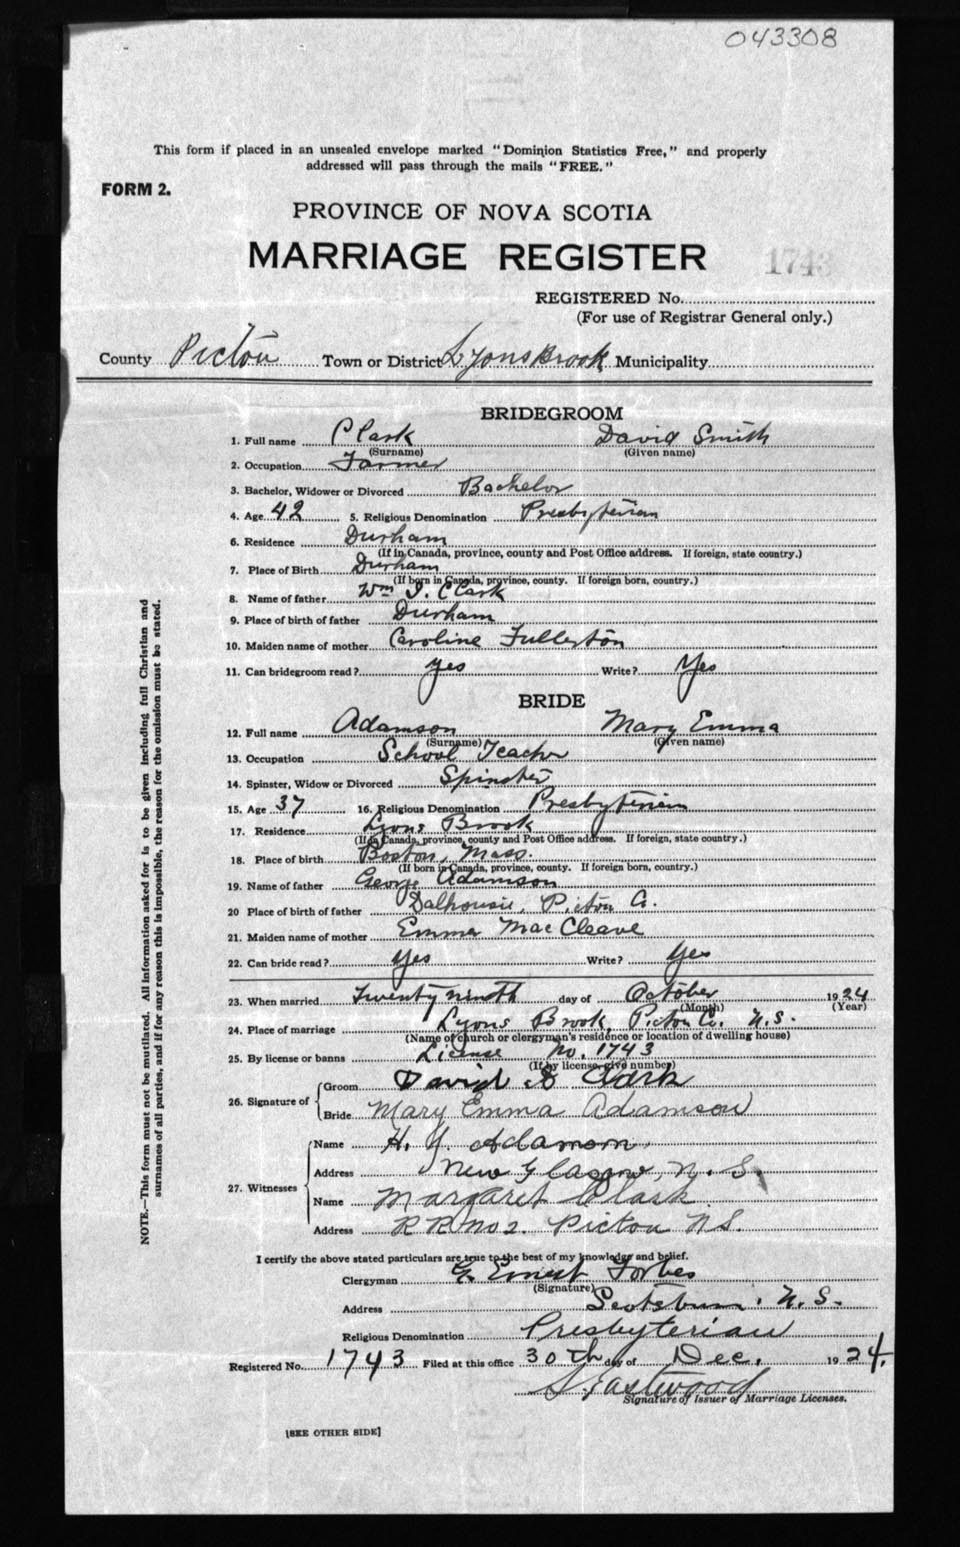 043308
This form if placed in an unsealed envelope marked "Dominion Statistics Free," and properly
addressed will pass through the mails "FREE."
FORM 2.
PROVINCE OF NOVA SCOTIA
MARRIAGE REGISTER
1743
REGISTERED No.
(For use of Registrar General only.)
County Pictou Town or District Lyons Brook Municipality
BRIDEGROOM
1. Full name Clark David Smith
(Surname) (Given name)
2. Occupation Farmer
3. Bachelor, Widower or Divorced Bachelor
4. Age 42 5. Religious Denomination Presbyterian
6. Residence Durham
(If in Canada, province, county and Post Office address. If foreign, state country.)
7. Place of Birth Durham
(If born in Canada, province, county. If foreign born, country.)
8. Name of father Wm J. Clark
9. Place of birth of father Durham
10. Maiden name of mother Caroline Fullerton
11. Can bridegroom read? yes Write? Yes
BRIDE
12. Full name Adamson Mary Emma
(Surname) (Given name)
13. Occupation School Teacher
14. Spinster, Widow or Divorced Spinster
15. Age 37 16. Religious Denomination Presbyterian
17. Residence Lyons Brook
(If in Canada, province, county and Post Office address. If foreign, state country.)
18. Place of birth Boston, Mass.
(If born in Canada, province, county. If foreign born, country.)
19. Name of father George Adamson
20 Place of birth of father Dalhousie, Pictou Co.
21. Maiden name of mother Emma MacCleave
22. Can bride read? yes Write? yes
23. When married Twenty ninth day of October 1924
(Month) (Year)
24. Place of marriage Lyons Brook, Pictou Co. N.S.
(Name of church or clergyman's residence or location of dwelling house)
25. By license or banns License No. 1743
(If by license, give number)
26. Signature of Groom David S Clark
Bride Mary Emma Adamson
27. Witnesses Name H. Y. Adamson
Address New Glasgow, N.S.
Name Margaret Clark
Address R R No 2. Pictou N S.
I certify the above stated particulars are true to the best of my knowledge and belief.
Clergyman G. Ernest Forbes
(Signature)
Address Scotsburn, N.S.
Religious Denomination Presbyterian
Registered No. 1743 Filed at this office 30th day of Dec. 1924.
Eastwood
Signature of Issuer of Marriage Licenses.
[SEE OTHER SIDE]
NOTE.—This form must not be mutilated. All information asked for is to be given including full Christian and
surnames of all parties, and if for any reason this is impossible, the reason for the omission must be stated.